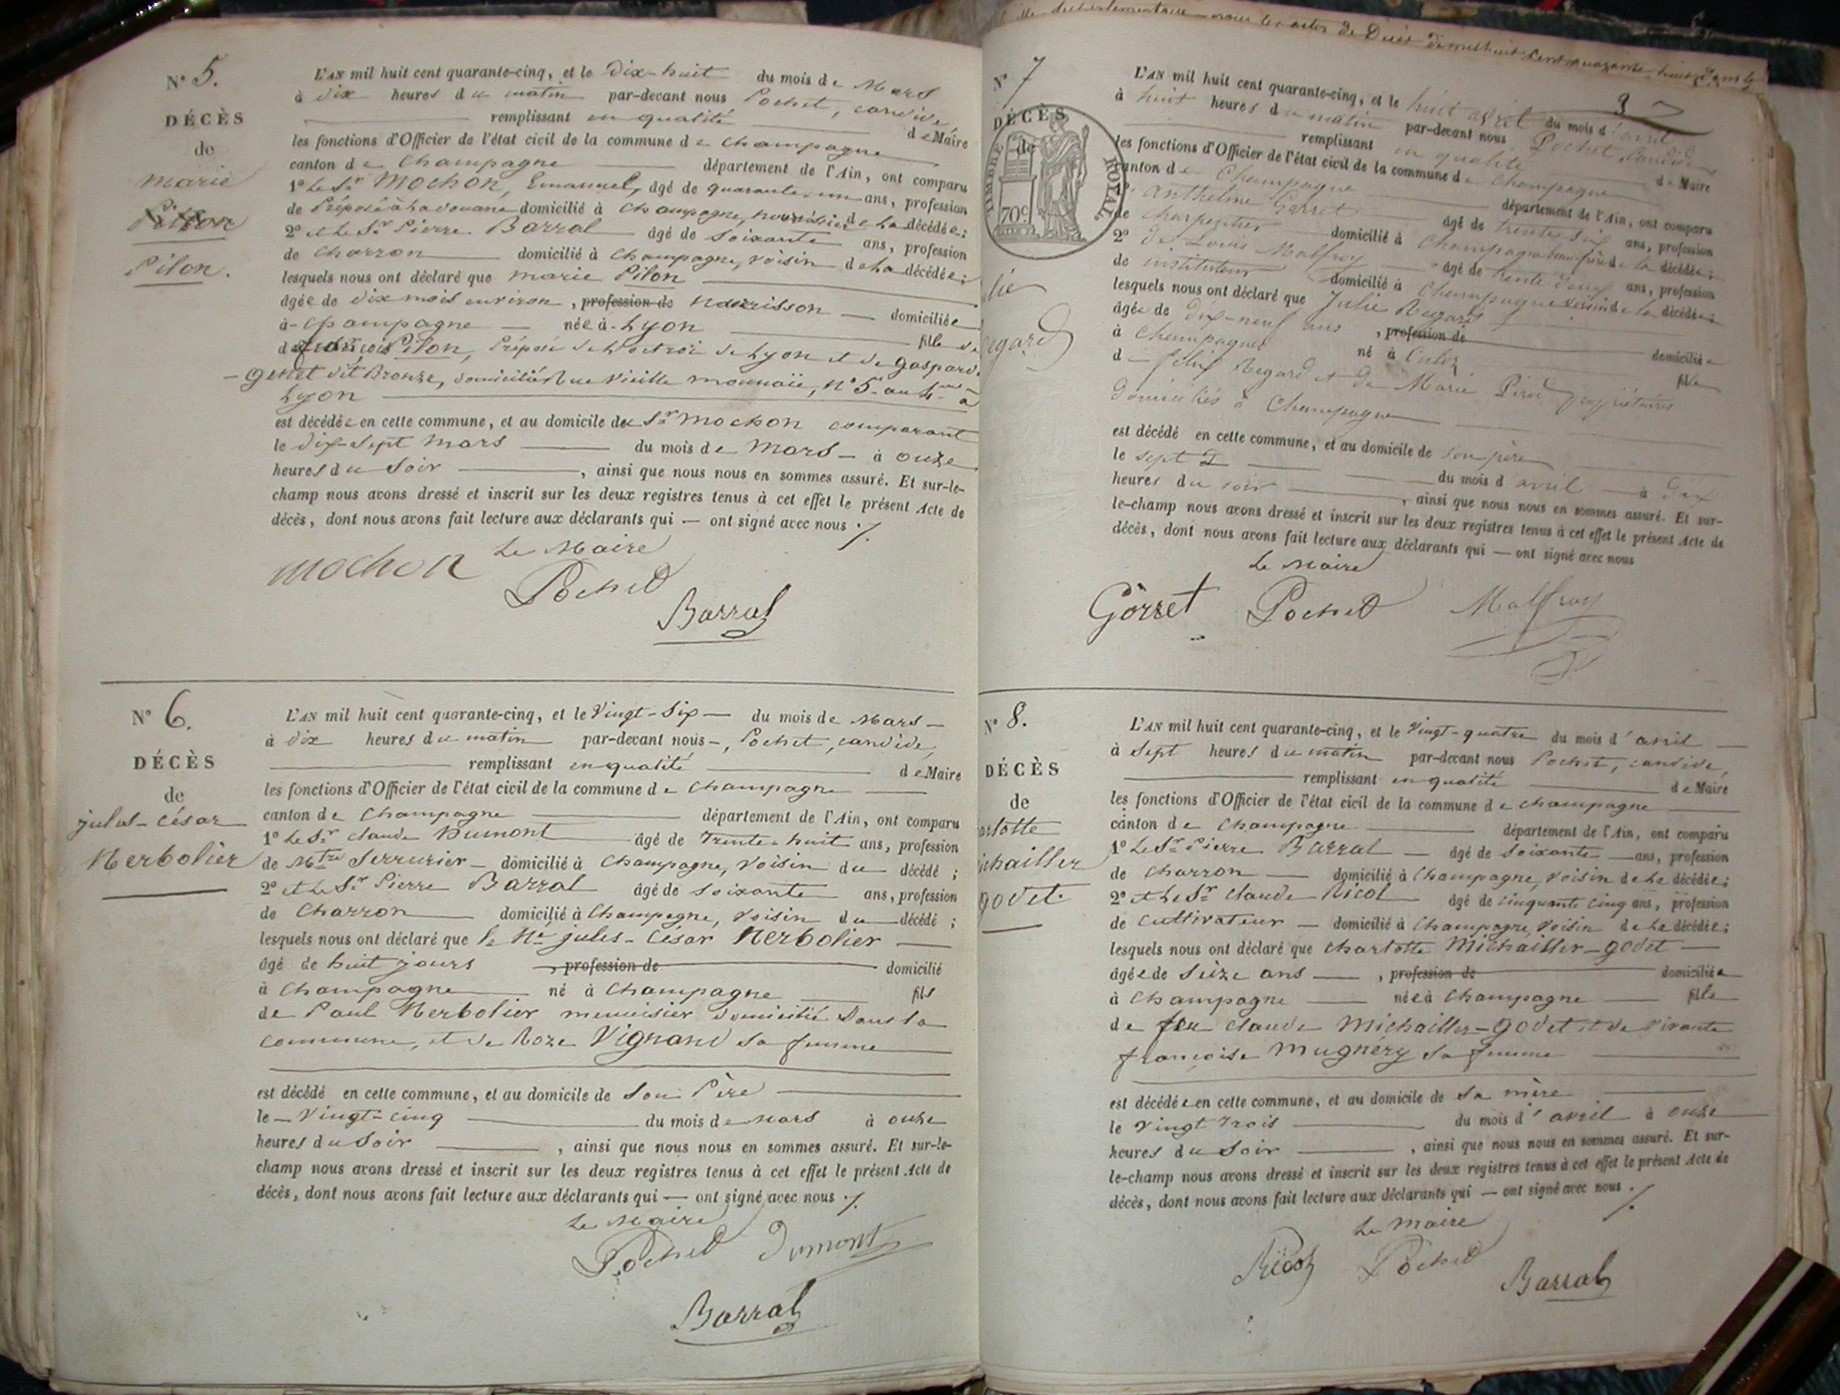 N° 5.
DÉCÈS
de
marie
Pilon
Pilon.
L'AN mil huit cent quarante-cinq, et le dix-huit du mois de Mars
à dix heures du matin par-devant nous Pochet, candide,
remplissant en qualité de Maire
les fonctions d'Officier de l'état civil de la commune de champagne
canton de champagne département de l'Ain, ont comparu
1° le Sr Mochon, Emanuel, âgé de quarante-un ans, profession
de Préposé à la douane domicilié à champagne, nourricier de la décédée;
2° et le Sr Pierre Barral âgé de soixante ans, profession
de charron domicilié à champagne, voisin de la décédée;
lesquels nous ont déclaré que marie Pilon
âgée de dix mois environ, profession de nourrisson domiciliée
à champagne née à Lyon fille de
françois Pilon, Préposé de l'octroi de Lyon et de Gaspard
Genet dit Bronze, domiciliés Rue vieille monnaie, N° 5 au 4me à
Lyon
est décédée en cette commune, et au domicile du Sr mochon comparant
le dix-sept mars du mois de Mars à onze
heures du soir, ainsi que nous nous en sommes assuré. Et sur-le-
champ nous avons dressé et inscrit sur les deux registres tenus à cet effet le présent Acte de
décès, dont nous avons fait lecture aux déclarants qui — ont signé avec nous ./.
Le Maire
mochon Pochet
Barral
N° 6.
DÉCÈS
de
jules-césar
Herbolier
L'AN mil huit cent quarante-cinq, et le vingt-six du mois de Mars
à dix heures du matin par-devant nous, Pochet, candide,
remplissant en qualité de Maire
les fonctions d'Officier de l'état civil de la commune de champagne
canton de champagne département de l'Ain, ont comparu
1° le Sr claude Dumont âgé de trente-huit ans, profession
de Mtre Serrurier domicilié à champagne, voisin du décédé;
2° et le Sr Pierre Barral âgé de soixante ans, profession
de charron domicilié à champagne, voisin du décédé;
lesquels nous ont déclaré que le Né jules-césar Herbolier
âgé de huit jours, profession de domicilié
à champagne né à champagne fils
de Paul Herbolier menuisier domicilié dans la
commune, et de Roze Vignand sa femme
est décédé en cette commune, et au domicile de son Père
le vingt-cinq du mois de Mars à onze
heures du soir, ainsi que nous nous en sommes assuré. Et sur-le-
champ nous avons dressé et inscrit sur les deux registres tenus à cet effet le présent Acte de
décès, dont nous avons fait lecture aux déclarants qui — ont signé avec nous ./.
Le Maire
Pochet Dumont
Barral
pour les actes de Décès dix mil huit cent quarante
3
N° 7
DÉCÈS
de
TIMBRE ROYAL
70 c
lie
egard
L'AN mil huit cent quarante-cinq, et le huit avril du mois d'avril
à huit heures du matin par-devant nous Pochet Candide
remplissant en qualité de Maire
les fonctions d'Officier de l'état civil de la commune de champagne
canton de Champagne département de l'Ain, ont comparu
1° Anthelme Gorret âgé de trente six ans, profession
de charpentier domicilié à Champagne beau frère de la décédée;
2° de Louis Malfroy âgé de trente deux ans, profession
de instituteur domicilié à Champagne voisin de la décédée;
lesquels nous ont déclaré que Julie Regard
âgée de dix-neuf ans, profession de domiciliée
à Champagne né à Culoz fille
d Félix Regard et de Marie propriétaires
domiciliés à Champagne
est décédé en cette commune, et au domicile de son père
le sept du mois d'avril à dix
heures du soir, ainsi que nous nous en sommes assuré. Et sur-
le-champ nous avons dressé et inscrit sur les deux registres tenus à cet effet le présent Acte de
décès, dont nous avons fait lecture aux déclarants qui — ont signé avec nous
Le Maire
Gorret Pochet Malfroy
N° 8.
DÉCÈS
de
arlotte
ichailler
godet.
L'AN mil huit cent quarante-cinq, et le vingt-quatre du mois d'avril
à sept heures du matin par-devant nous Pochet, candide,
remplissant en qualité de Maire
les fonctions d'Officier de l'état civil de la commune de champagne
canton de champagne département de l'Ain, ont comparu
1° le Sr Pierre Barral âgé de soixante ans, profession
de charron domicilié à champagne, voisin de la décédée;
2° et le Sr claude Ricol âgé de cinquante cinq ans, profession
de cultivateur domicilié à champagne, voisin de la décédée;
lesquels nous ont déclaré que charlotte Michailler-godet
âgée de seize ans, profession de domiciliée
à champagne née à champagne fille
de feu claude Michailler-godet et de vivante
françoise Mugnéry sa femme
est décédée en cette commune, et au domicile de sa mère
le vingt trois du mois d'avril à onze
heures du soir, ainsi que nous nous en sommes assuré. Et sur-
le-champ nous avons dressé et inscrit sur les deux registres tenus à cet effet le présent Acte de
décès, dont nous avons fait lecture aux déclarants qui — ont signé avec nous ./.
Le Maire
Ricol Pochet Barral